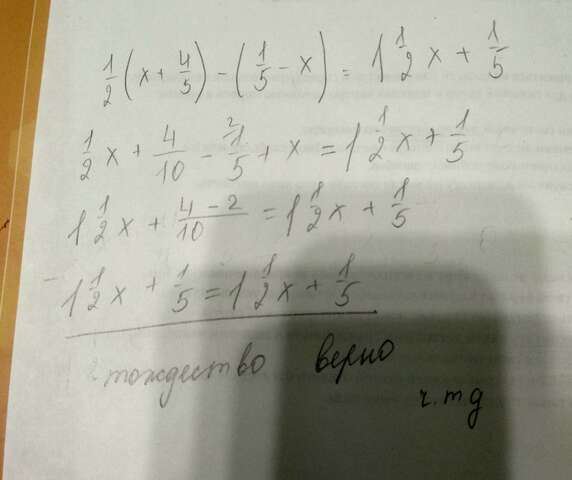 1/2(x + 4/5) - (1/5 - x) = 1 1/2x + 1/5
1/2x + 4/10 - 2 1/5 + x = 1 1/2x + 1/5
1 1/2x + 4-2/10 = 1 1/2x + 1/5
1 1/2x + 1/5 = 1 1/2x + 1/5
тождество верно
ч.тд